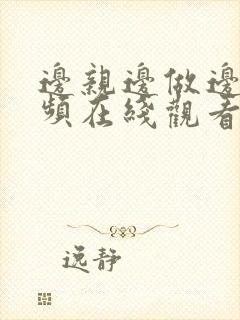 邊親邊做邊
頻在綫觀看
逸静